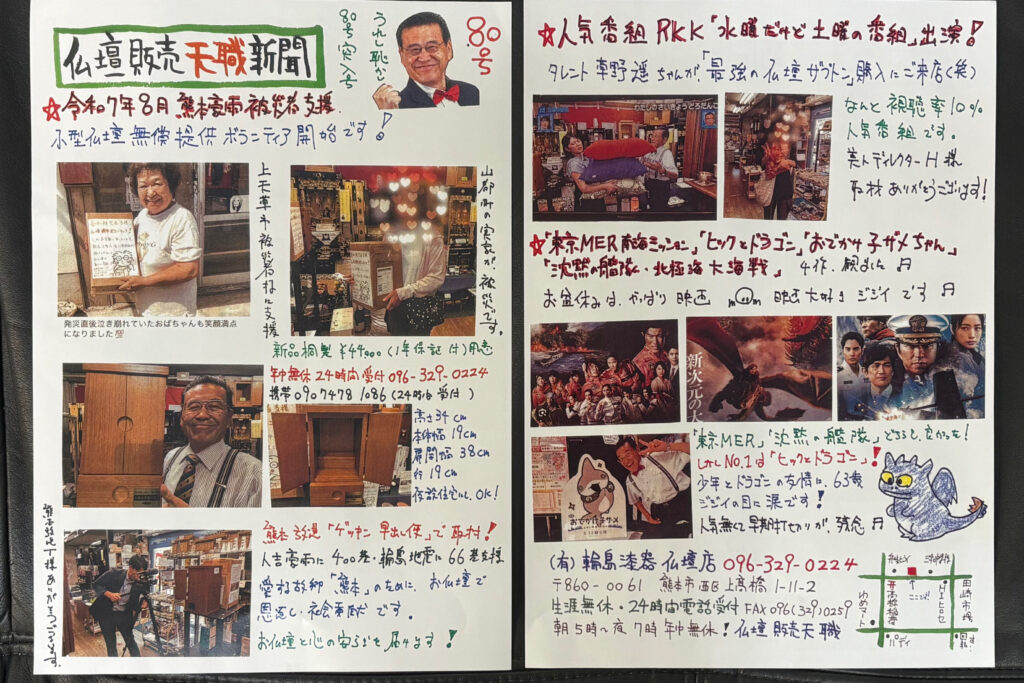 仏壇販売天職新聞
うれし恥かし
80号突入号
80号
☆令和7年8月 熊本豪雨被災者支援
小型仏壇無償提供ボランティア開始です!
上天草市被災者様に支援
山都町の実家が、被災です。
発災直後泣き崩れていたおばちゃんも笑顔満点
になりました
新品桐製 ¥44,000(1年保証付)用意
年中無休24時間受付096-329-0224
携帯09074781086(24時間受付)
高さ34cm
本体幅19cm
扉開幅38cm
行19cm
仮設住宅にも、OK!
熊本放送「ゲツキン早出し便」で取材!
人吉豪雨に400巻・輪島地震に66巻支援
愛する故郷「熊本」のために、お仏壇で
恩返し・社会奉仕です。
お仏壇と心の安らぎを届けます!
様ありがとうございます。
☆人気番組RKK「水曜だけど土曜の番組」出演!
タレント草野遥ちゃんが「最強の仏壇ザブトン」購入にご来店(笑)
わたしのさいきょうどろだんご
なんと視聴率10%
人気番組です。
美人ディレクターH様
取材ありがとうございます!
☆「東京MER南海ミッション」「ヒックとドラゴン」「おでかけ子ザメちゃん」
「沈黙の艦隊・北極海大海戦」 4作、観ました♬
お盆休みは、やっぱり映画 映画大好きジジイです♬
新次元の
おでかけ子ザメ
「東京MER」「沈黙の艦隊」どちらも良かった!
しかしNo.1は「ヒックとドラゴン」!
少年とドラゴンの友情に、63歳
ジジイの目に涙です!
人気無くて早期打ち切りが、残念♬
(有)輪島漆器仏壇店 096-329-0224
〒860-0061 熊本市西区上高橋1-11-2
生涯無休・24時間電話受付FAX096(329)0259
朝5時〜夜7時年中無休!仏壇販売天職
ゆめマート
高橋稲荷
ここ!
ヒロセ
田崎市場
パティ